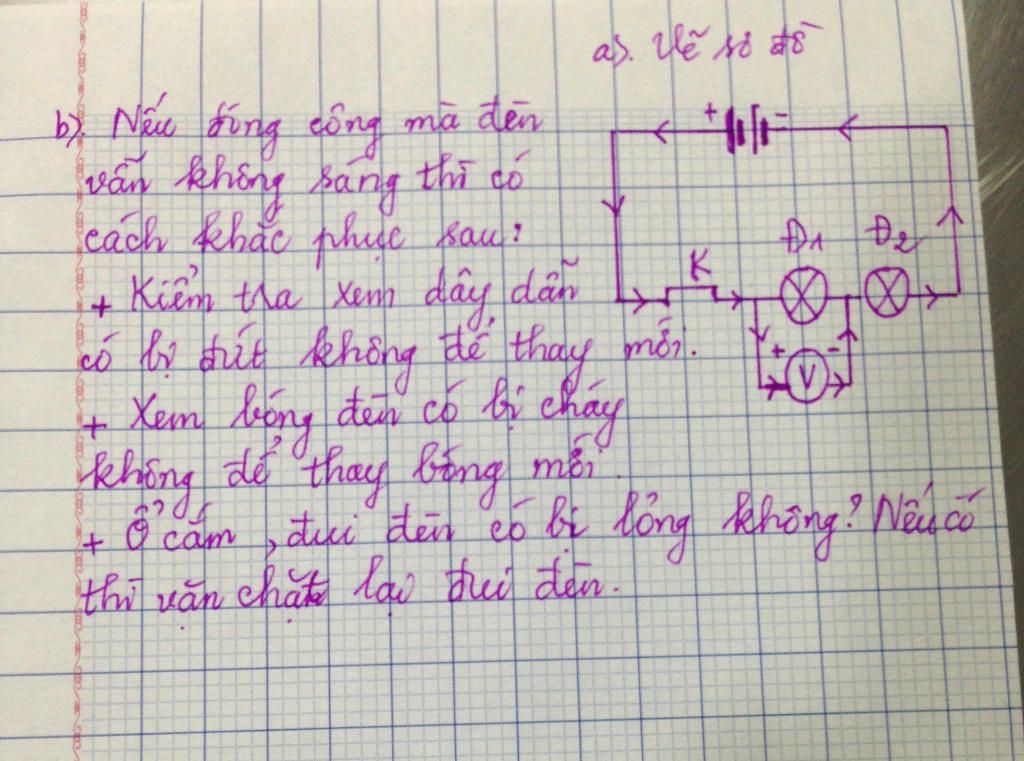 a). Vẽ sơ đồ
b). Nếu đóng công mà đèn
vẫn không sáng thì có
cách khắc phục sau:
+ Kiểm tra xem dây dẫn
có bị đứt không để thay mới.
+ Xem bóng đèn có bị cháy
không để thay bóng mới.
+ Ổ cắm, đui đèn có bị lỏng không? Nếu có
thì vặn chặt lại đui đèn.
+ -
Đ1 Đ2
K
+ -
V